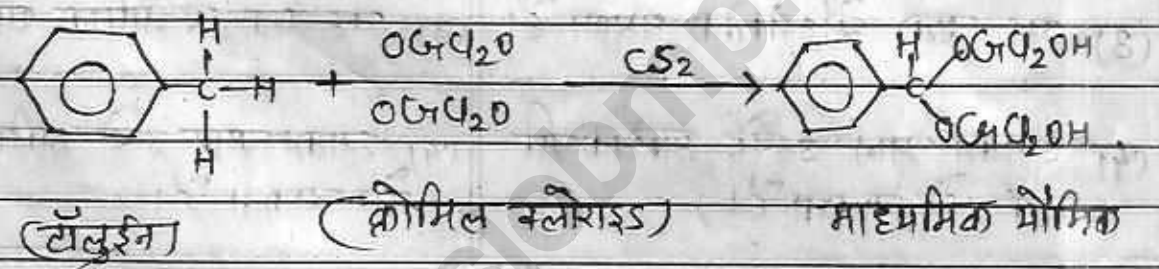 H OCrCl₂O H OCrCl₂OH
C—H + CS₂ → C
OCrCl₂O OCrCl₂OH
H
(टॉलुईन) (क्रोमिल क्लोराइड) माध्यमिक यौगिक